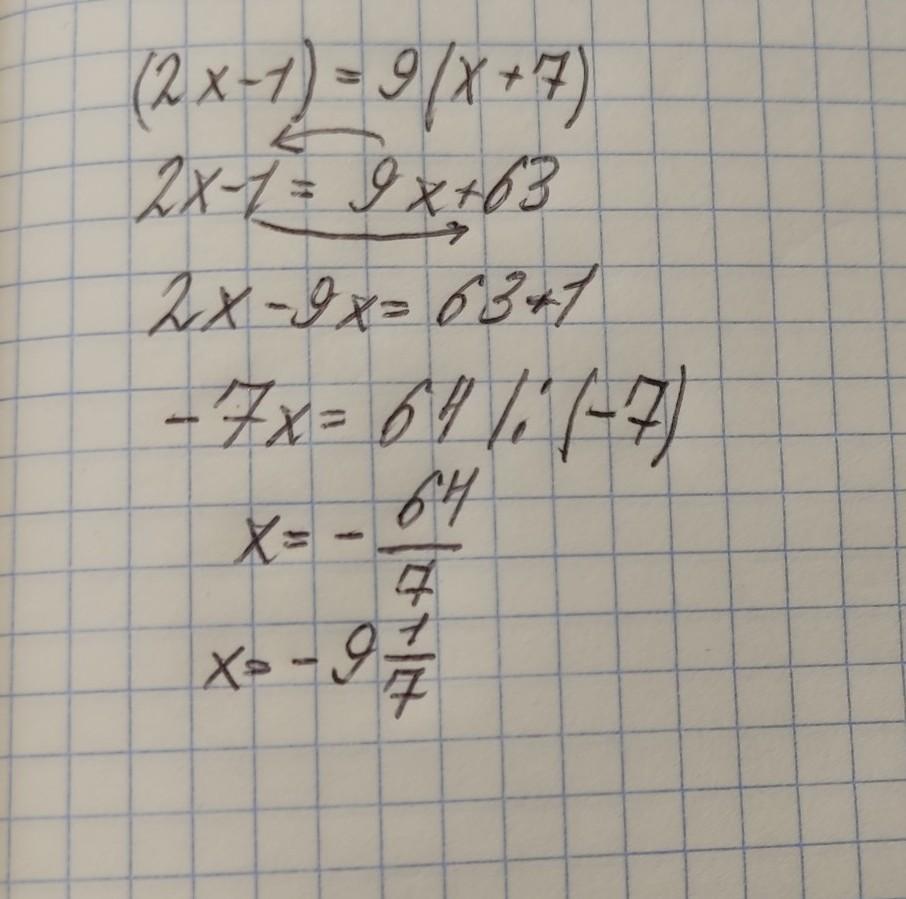 (2x-1) = 9(x+7)
2x-1 = 9x+63
2x-9x= 63+1
-7x= 64 /: (-7)
x= - 64/7
x= - 9 1/7